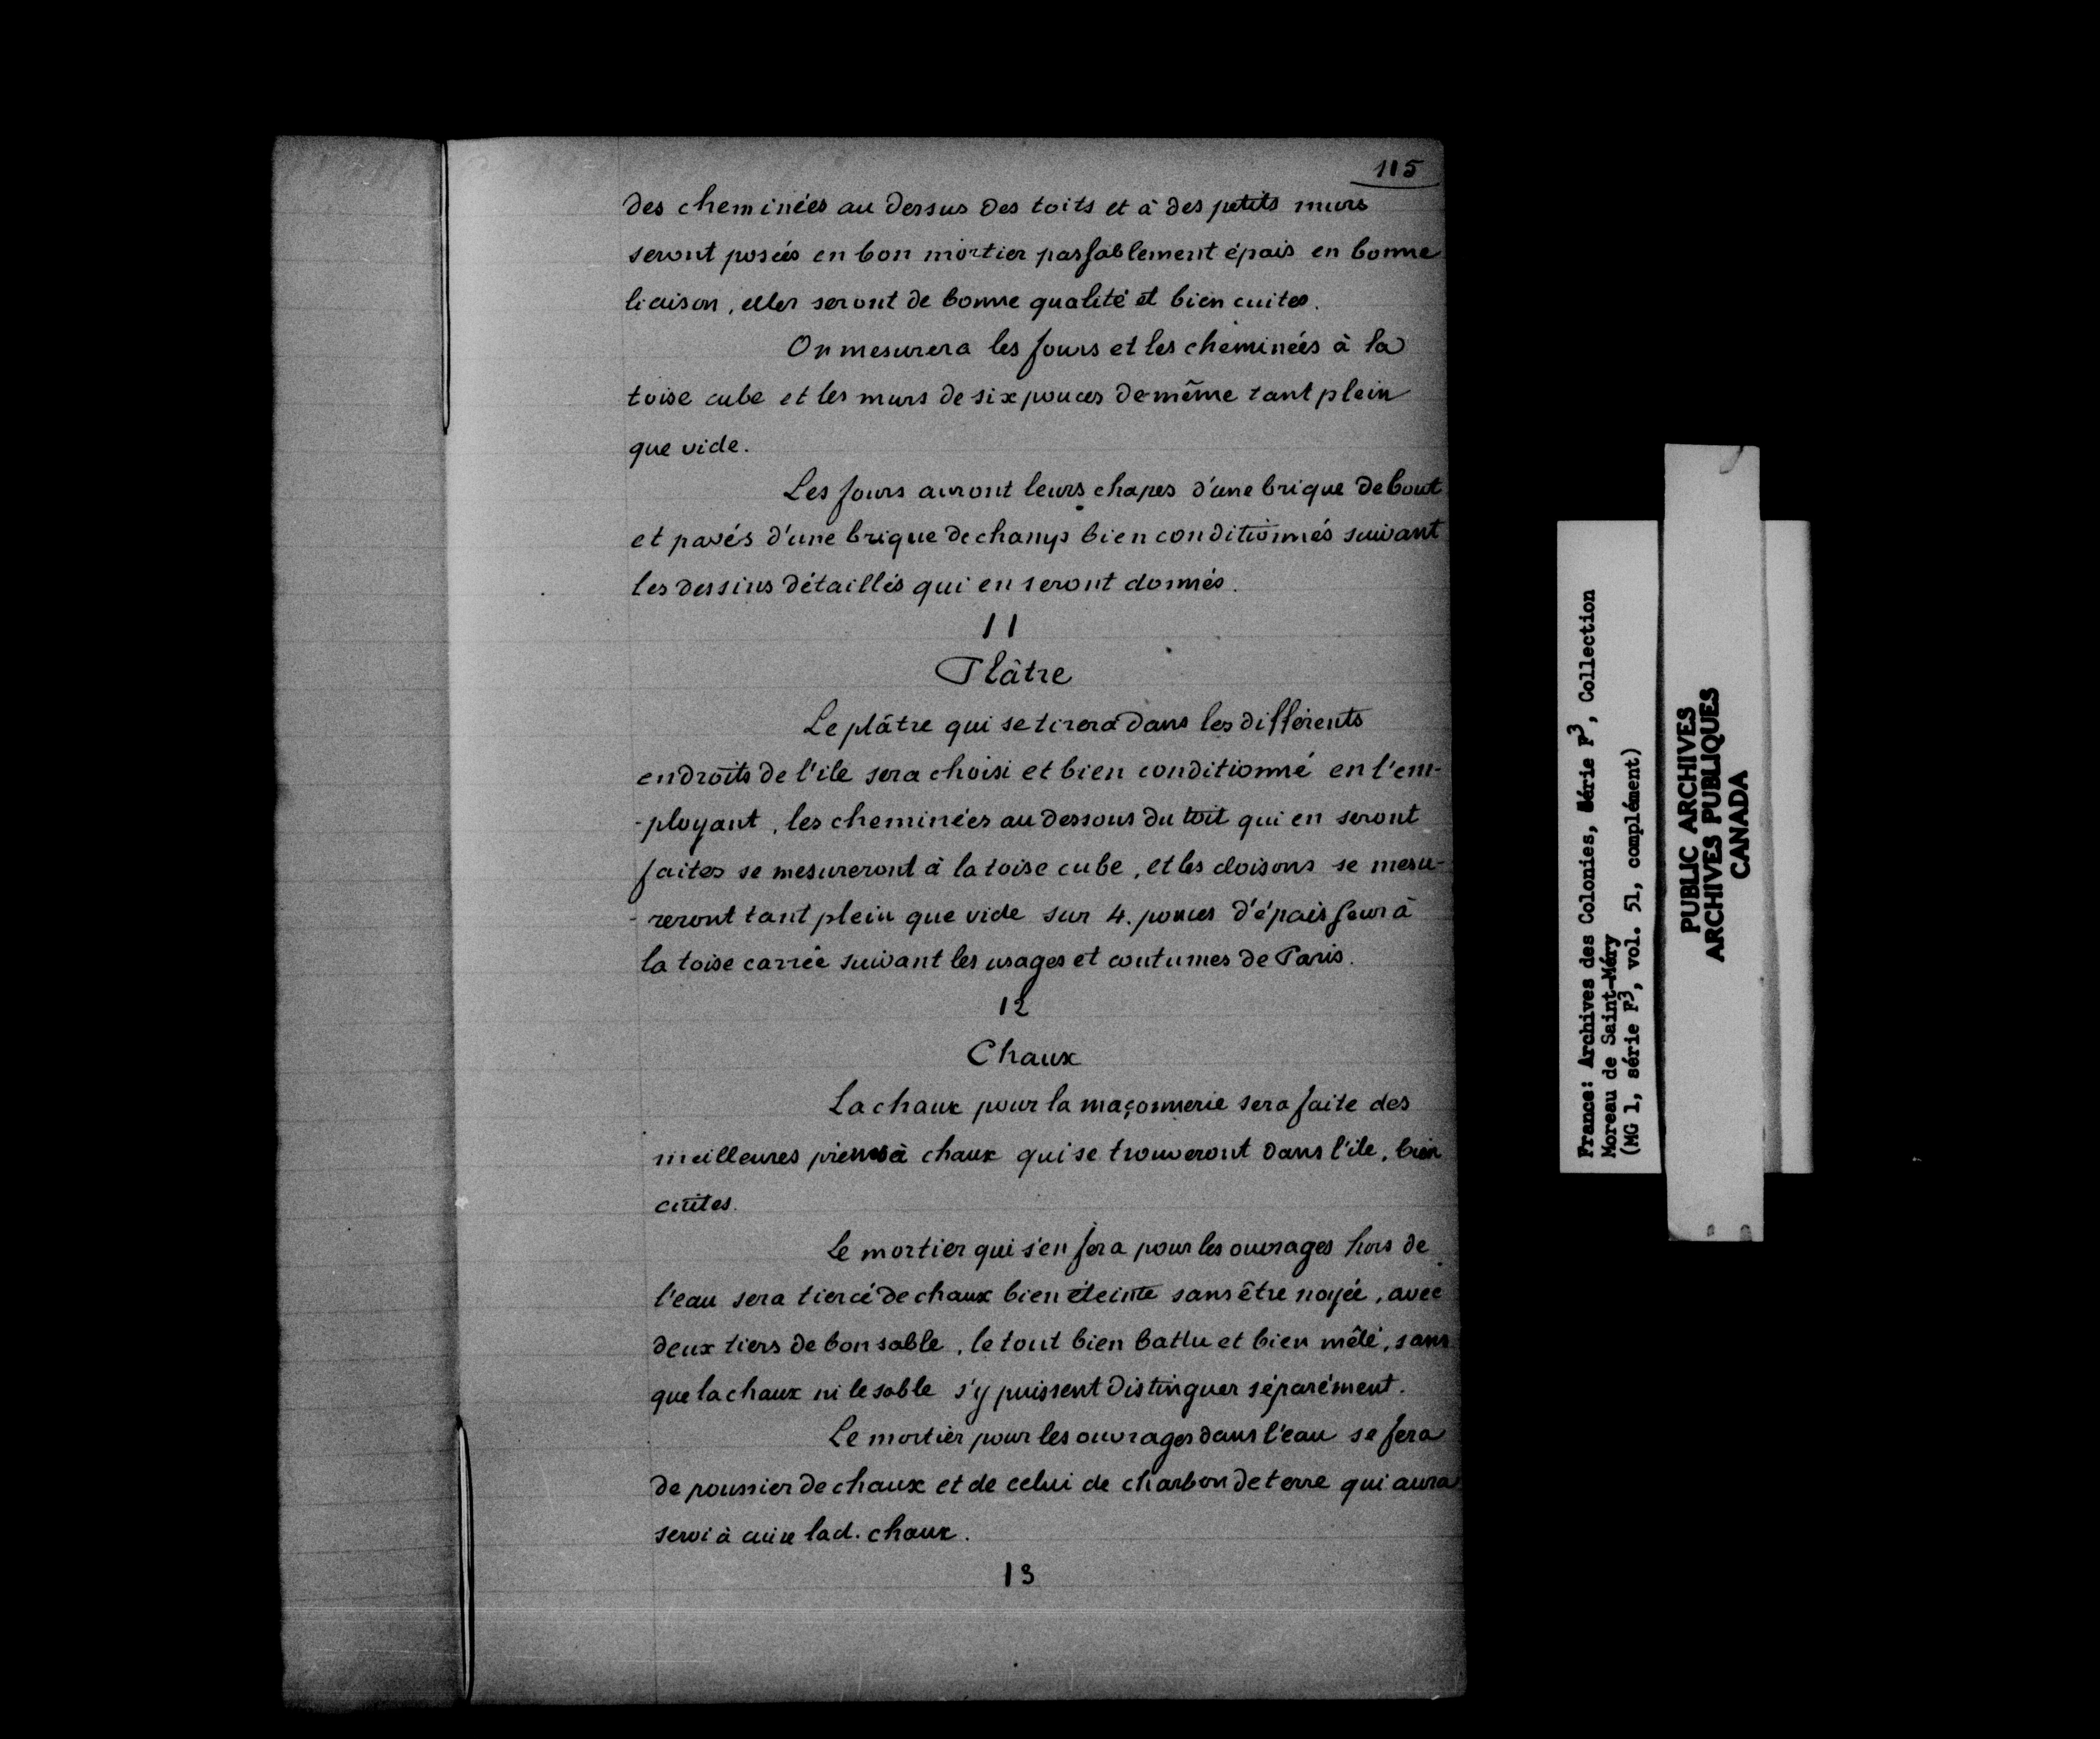 115
des cheminées au dessus des toits et à des petits murs
seront posées en bon mortier passablement épais en bonne
liaison, elles seront de bonne qualité et bien cuites.
On mesurera les fours et les cheminées à la
toise cube et les murs de six pouces de même tant plein
que vide.
Les fours auront leurs chapes d'une brique debout
et pavés d'une brique de champ bien conditionnés suivant
les dessins détaillés qui en seront donnés.
11
Plâtre
Le plâtre qui se tirera dans les différents
endroits de l'ile sera choisi et bien conditionné en l'em-
-ployant, les cheminées au dessous du toit qui en seront
faites se mesureront à la toise cube, et les cloisons se mesu-
-reront tant plein que vide sur 4. pouces d'épaisseur à
la toise carrée suivant les usages et coutumes de Paris.
12
Chaux
La chaux pour la maçonnerie sera faite des
meilleures pierres à chaux qui se trouveront dans l'ile, bien
cuites.
Le mortier qui s'en fera pour les ouvrages hors de
l'eau sera tiercé de chaux bien éteinte sans être noyée, avec
deux tiers de bon sable, le tout bien battu et bien mêlé, sans
que la chaux ni le sable s'y puissent distinguer séparément.
Le mortier pour les ouvrages dans l'eau se fera
de poussier de chaux et de celui de charbon de terre qui aura
servi à cuire lad. chaux.
13
France: Archives des Colonies, Série F3, Collection
Moreau de Saint-Méry
(MG 1, série F3, vol. 51, complément)
PUBLIC ARCHIVES
ARCHIVES PUBLIQUES
CANADA